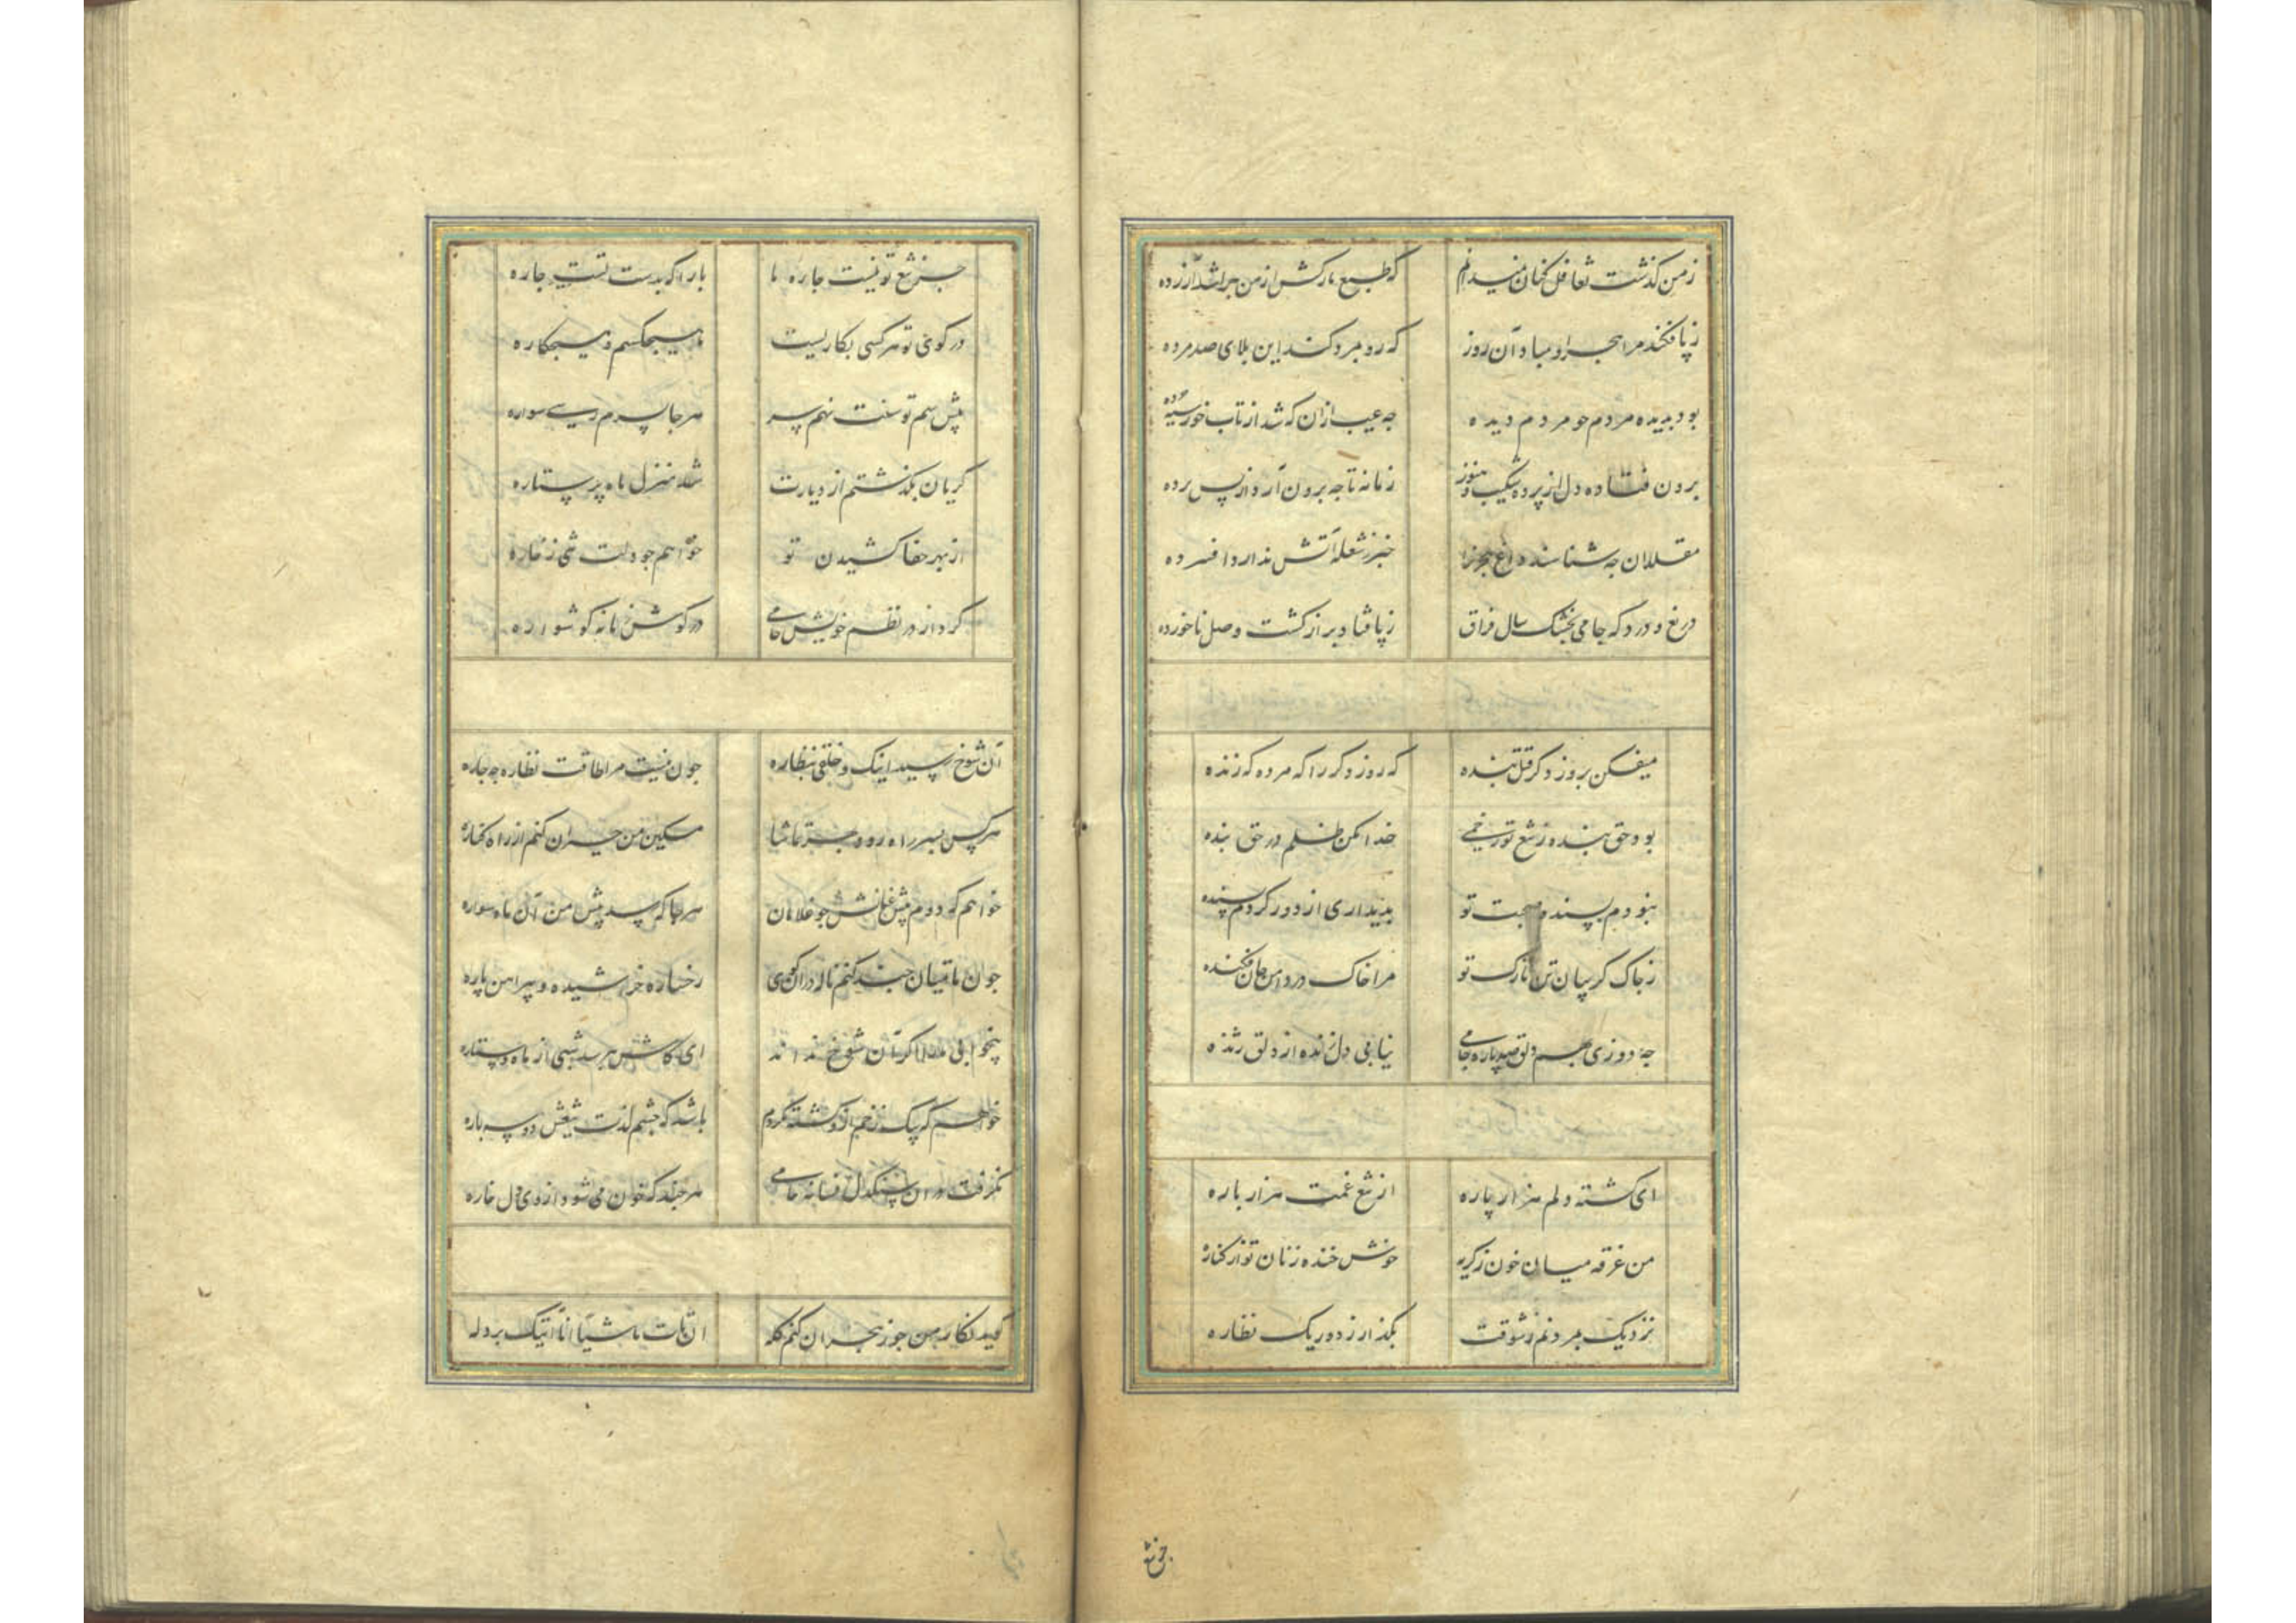 ز من گذشت تغافل کنان نمیدانم که طبع نازکش از من چرا شد آزرده
ز پا فکند مرا هجر او مباد آن روز که رو بمرد کند این بلای صد مرده
بود بدیده مردم چو مردم دیده چه عیب ازان که شد از تاب خور سیه چرده
برون فتاده دل از پرده شکیب و هنوز زمانه تا چه برون آرد از پس پرده
مقلدان چه شناسند داغ هجرانرا خبر ز شعله آتش ندارد افسرده
دریغ و درد که جامی بخشک سال فراق ز پا فتاد و بر از کشت وصل ناخورده
میفکن بروز دگر قتل بنده که روز دگر را که مرده که زنده
بود حق بنده ز تیغ تو زخمی خدا را مکن ظلم در حق بنده
نبودم پسنده صحبت تو بدیداری از دور کردم پسنده
ز چاک گریبان تن نازک تو مرا چاک در دامن جان فکنده
چه دوزی بهم دلق صد پاره جامی نیابی دل زنده از دلق ژنده
ای گشته دلم هزار پاره از تیغ غمت هزار باره
من غرقه میان خون ز گریه خوش خنده زنان تو از کناره
نزدیک بمردنم ز شوقت بگذار ز دور یک نظاره
جز تیغ
جز تیغ تو نیست چاره ما یار اگه بدست تست چاره
در کوی تو هر کسی بکاریست ما هیچکسیم و هیچکاره
پیش سم توسنت نهم سر هر جا بسرم رسی سواره
گریان بگذشتم از دیارت شد منزل ماه پر ستاره
از بهر جفا کشیدن تو خواهم چو دلت شی ز خاره
کرد از در نظم خویش جامی در گوش زمانه گوشواره
آن شوخ رسید اینک و خلقی بنظاره چون نیست مرا طاقت نظاره چه چاره
هر کس بسر راه رود بهر تماشا مسکین من حیران کنم از راه کناره
خواهم که دوم پیش عنانش چو غلامان هر جا که رسد پیش من آن ماه سواره
چون ماتمیان چند کنم ناله در آن کوی رخساره خراشیده و پیراهن پاره
بیخوابی ما را اگر آن شوخ نداند ای کاش بپرسد شبی از ماه و ستاره
خواهم که بیک زخم ازو کشته نگردم باشد که چشم لذت تیغش دو سه باره
نگرفت در آن سنگدل افسانه جامی هر چند که خون می شود از وی دل خاره
گوید نگار من چو ز هجران کنم گله ان فات ماشیا انا آتیک بردله